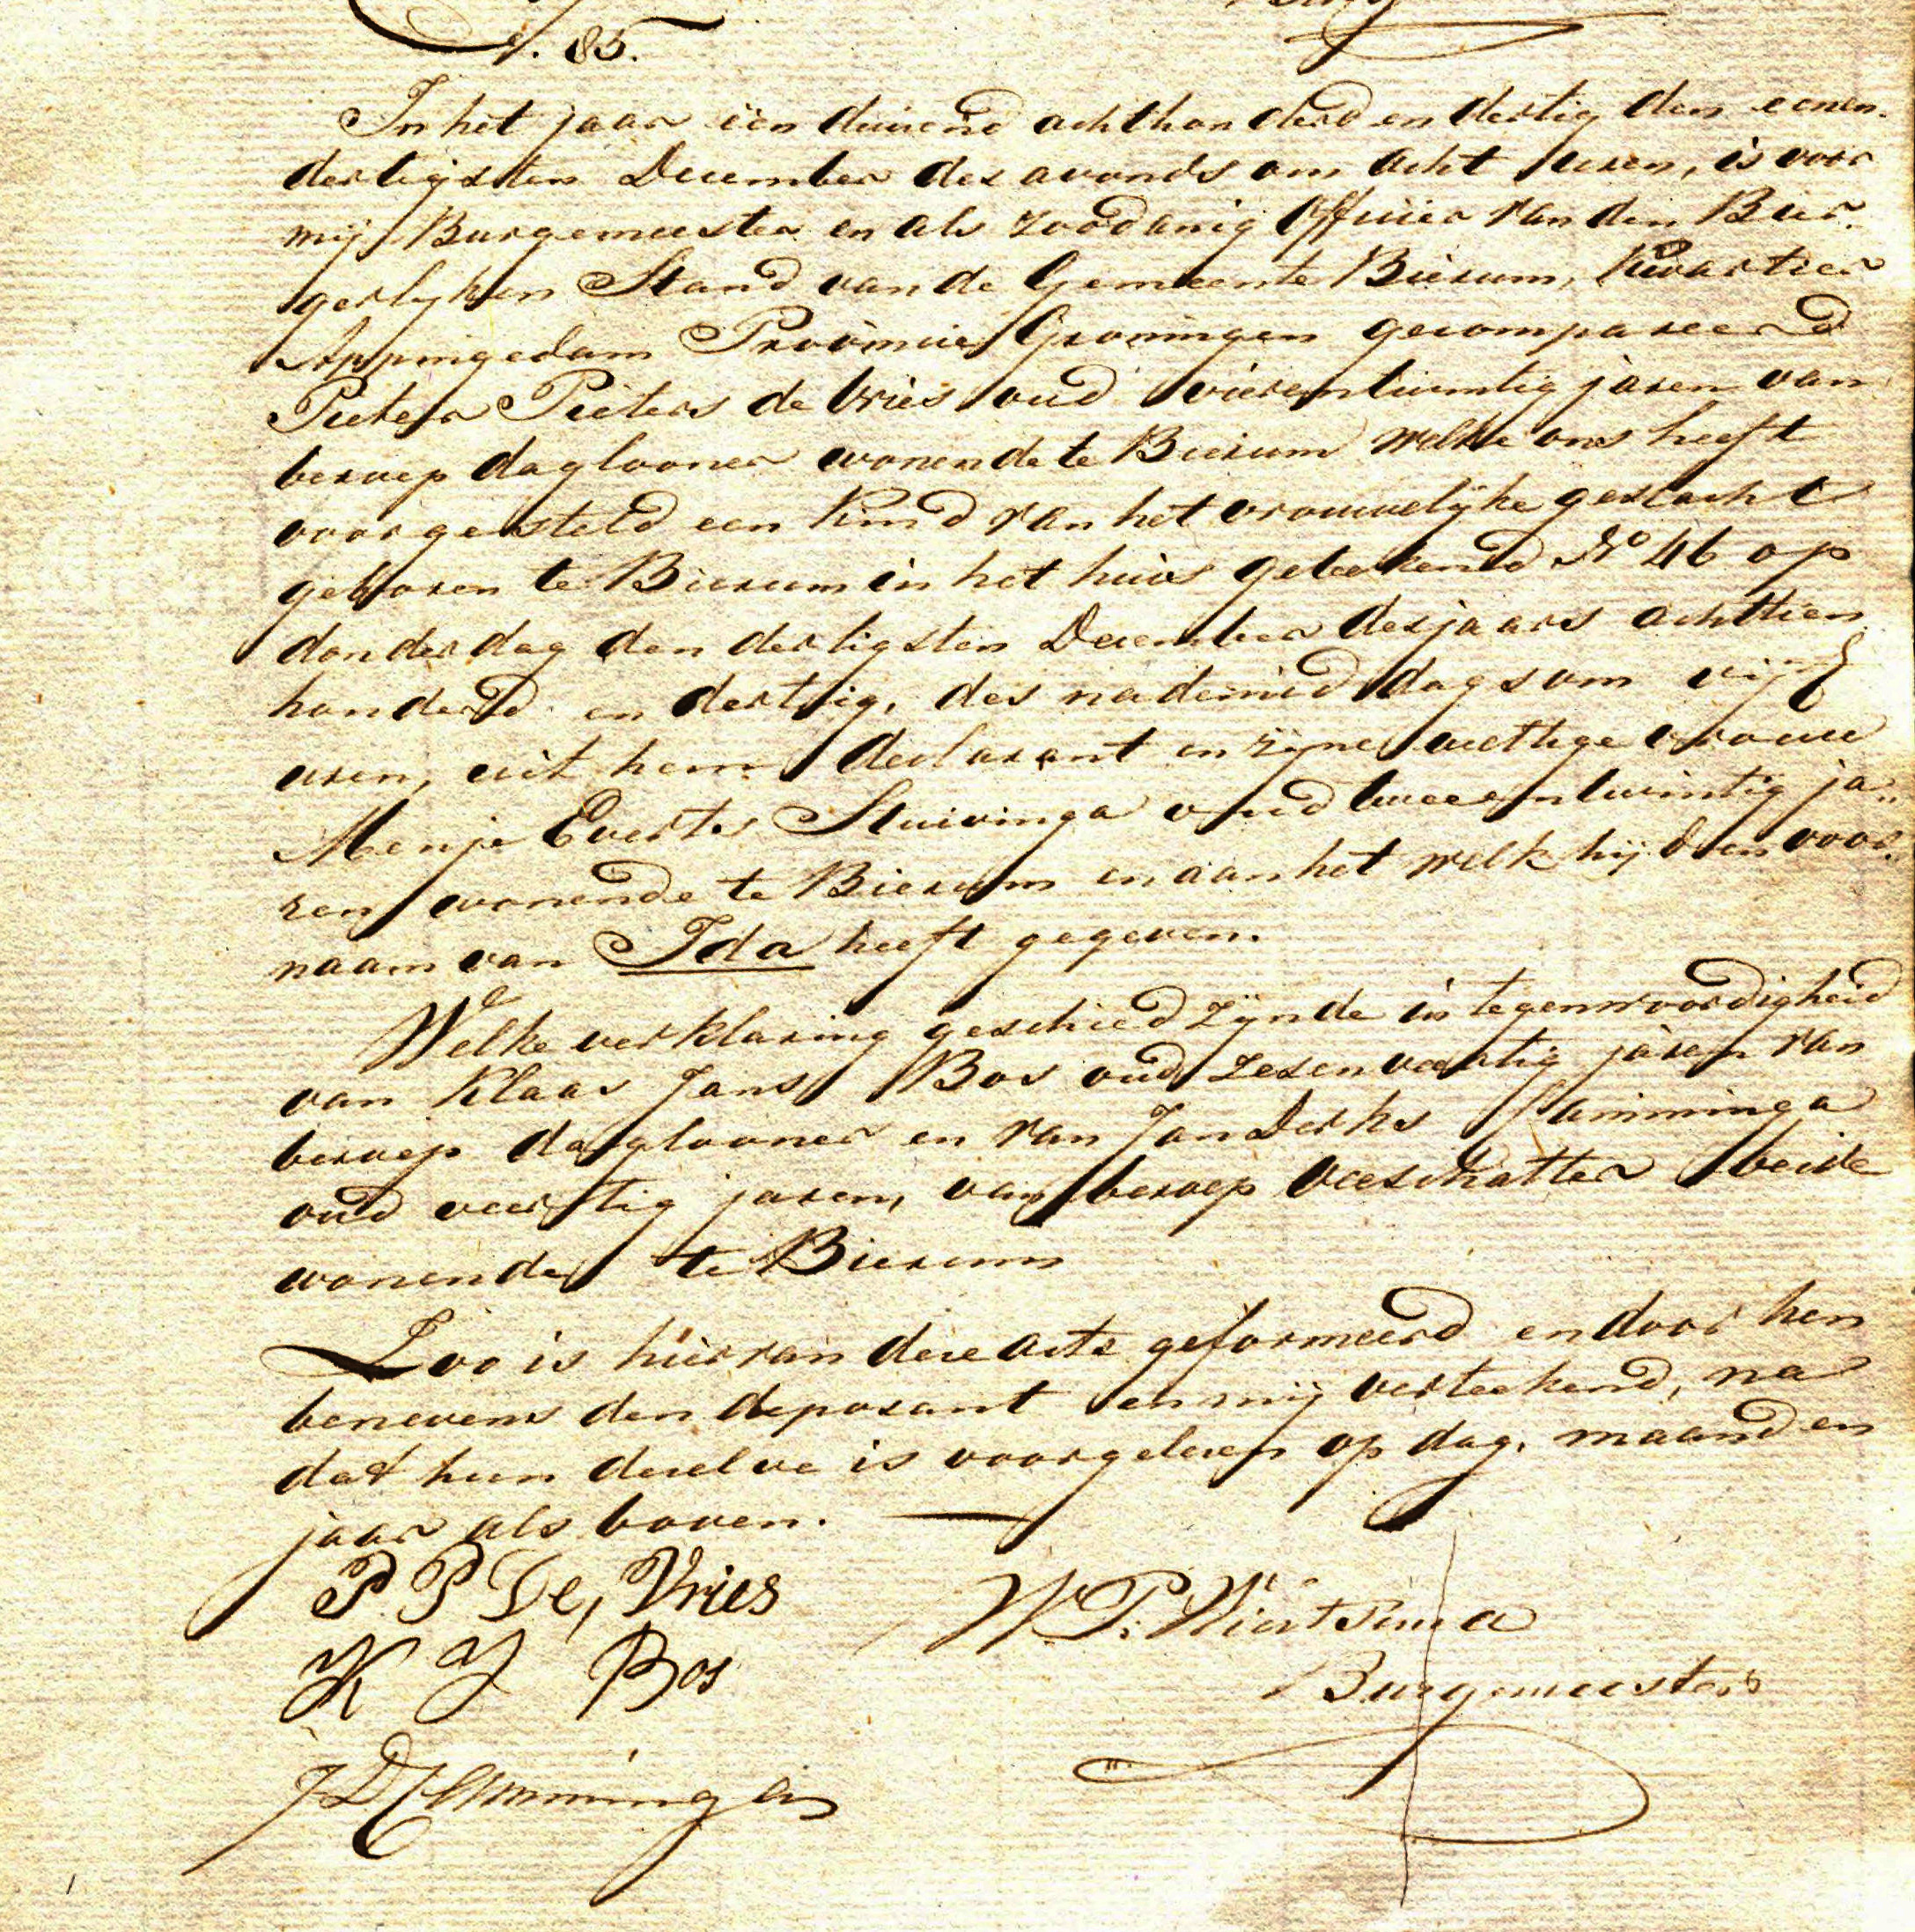 85.
In het jaar één duizend achthonderd en dertig den eenen-
dertigsten December des avonds om acht uren, is voor
mij Burgemeester en als zoodanig Officier van den Bur-
gerlijken Stand van de Gemeente Bierum, Kwartier
Appingedam Provincie Groningen gecompareerd
Pieter Pieters de Vries oud vierentwintig jaren van
beroep daglooner wonende te Bierum welke ons heeft
voorgesteld een kind van het vrouwelijke geslacht
geboren te Bierum in het huis geteekend No 46 op
donderdag den dertigsten December des jaars achttien
honderd en dertig, des nademiddags om vijf
uren, uit hem declarant en zijne wettige vrouw
Menje Everts Stuivinga oud tweeentwintig ja-
ren wonende te Bierum en aan het welk hij den voor-
naam van Ida heeft gegeven.
Welke verklaring geschied zijnde in tegenwoordigheid
van Klaas Jans Bos oud zesenveertig jaren van
beroep daglooner en van Jan Derks
oud veertig jaren, van beroep veeschatter beide
wonende te Bierum
Zoo is hiervan deze acte geformeerd en door hen
benevens den deposant en mij verteekend, na
dat hun dezelve is voorgelezen op dag, maand en
jaar als boven.
P. P De, Vries
W. P. Wiertsema
K J Bos
Burgemeester
J D